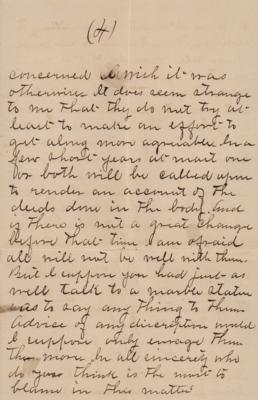 (4)
concerned I wish it was
otherwise It does seem strange
to me that thy do not try at
least to make an effort to
get along more agreeable In a
few short years at most one
or both will be called upon
to render an account of the
deeds done in the body. And
if there is not a great change
before that time I am afraid
all will not be well with them.
But I suppose you had just as
well talk to a marble statue
as to say any thing to them
advice of any discription would
I suppose only enrage them
the more. In all sincerity who
do you think is the most to
blame in this matter